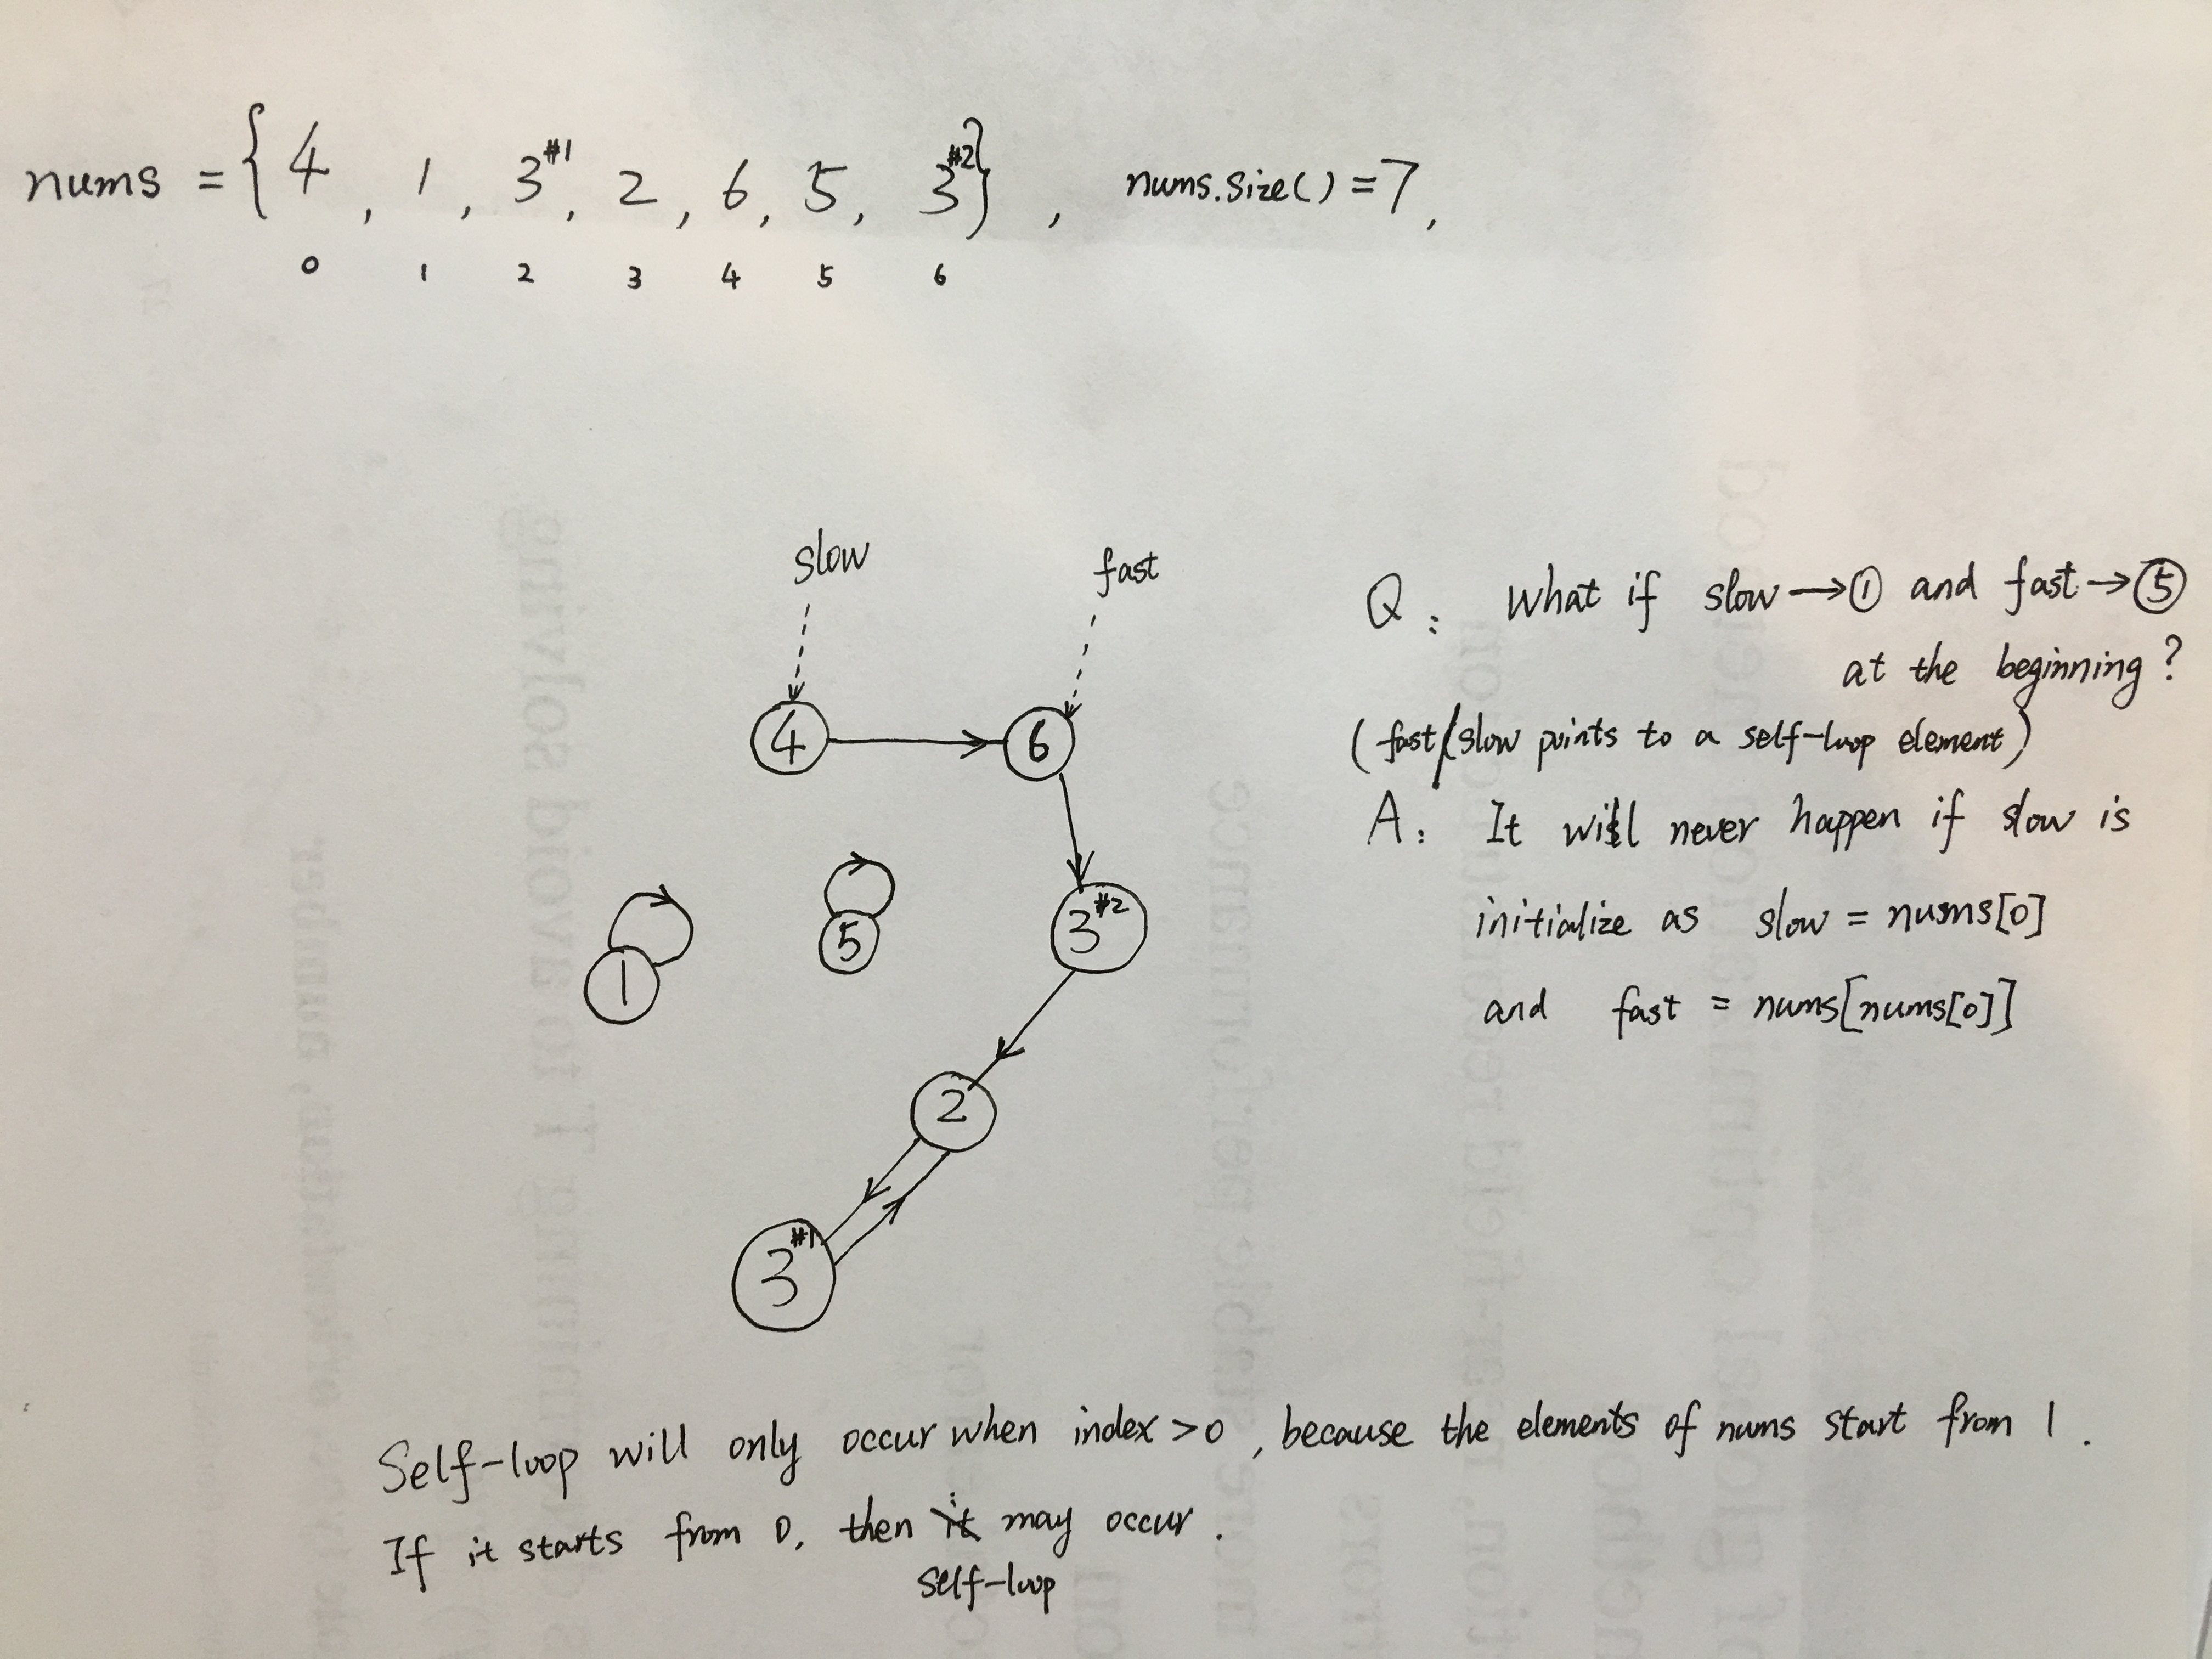 nums = {4, 1, 3#1, 2, 6, 5, 3#2}, nums.size() = 7,
0 1 2 3 4 5 6
slow fast
4 6
3#2
1 5
2
3#1
Q: What if slow → ① and fast → ⑤
at the beginning?
(fast/slow points to a self-loop element)
A: It will never happen if slow is
initialize as slow = nums[0]
and fast = nums[nums[0]]
Self-loop will only occur when index > 0, because the elements of nums start from 1.
If it starts from 0, then it may occur.
self-loop